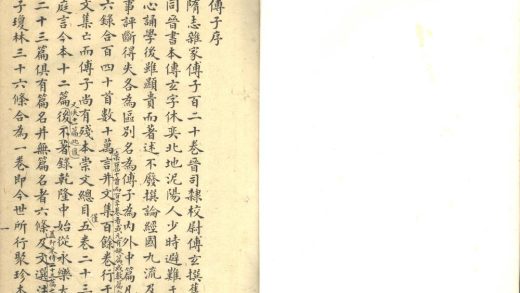 傅子序
隋志雜家傅子百二十卷晉司隸校尉傅玄撰舊
同晉書本傅玄字休奕北地泥陽人少時避難于
心誦學後雖顯貴而著述不廢撰論經國九流及
事評斷得失各為區別名為傅子為內外中篇凡
六錄合百四十首數十萬言并文集百餘卷行于
文集亡而傅子尚有殘本崇文總目五卷二十三
庭言今本十二篇後不著錄乾隆中始從永樂大
二十三篇俱有篇名并無篇名者六條及文選注
子瓊林三十六條合為一卷即今世所行聚珍本